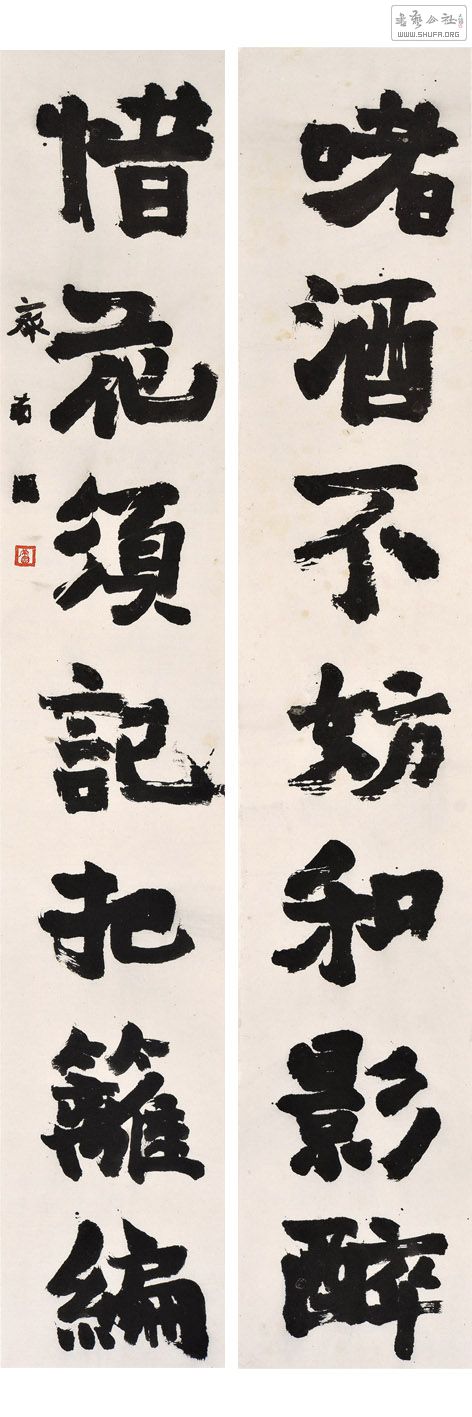 書藝公社
WWW.SHUFA.ORG
嗜酒不妨和影醉
惜花須記把籬編